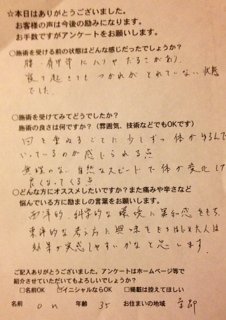 ☆本日はありがとうございました。
お客様の声は今後の励みになります。
お手数ですがアンケートをお願いします。
○施術を受ける前の状態どんな感じだったでしょうか？
腰、背中常にハリやだるさがあり、
寝て起きてもつかれがとれていない状態
でした。
○施術を受けてみてどうでしたか？
施術の良さは何ですか？（雰囲気、技術などでもOKです）
回を重ねるごとに少しずつ体がゆるんで
いっているのが感じられる点
無理のない自然なスピードで体が変化し
良くなってくる点
○どんな方にオススメしたいですか？また痛みや辛さなど
悩んでいる方に励ましの言葉をお願いします。
西洋的 科学的な環境に違和感をもち、
東洋的な考え方に興味をもちはじめた人は
効果が実感しやすいかなと思います。
ご記入ありがとうございました。アンケートはホームページ等で
紹介させていただいてもよろしいでしょうか？
□名前OK ☑イニシャルならOK □掲載は控えてほしい
名前 O N 年齢 35 お住まいの地域 京都